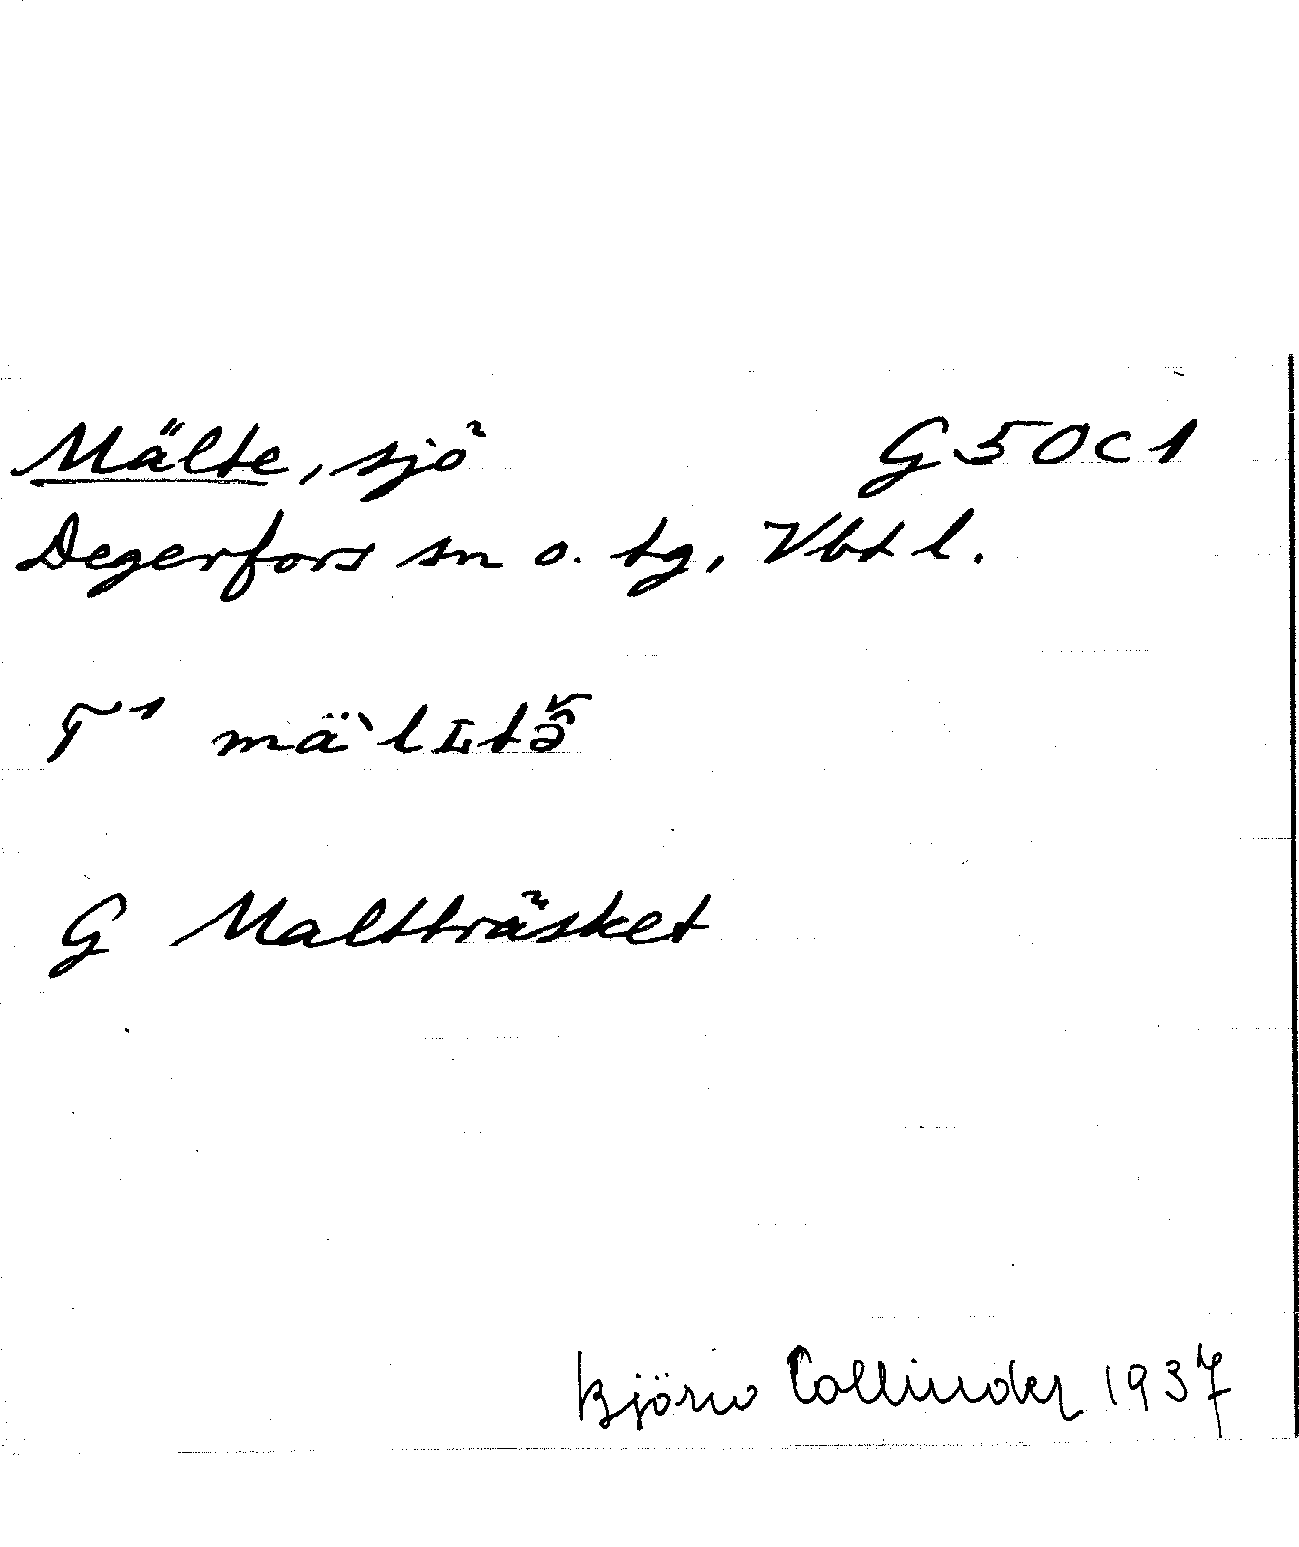 Mälte, sjö G50c1
Degerfors sn o. tg, Vbt l.
T¹ mä`lʟtə̌̂
G Maltträsket
Björn Collinder 1937